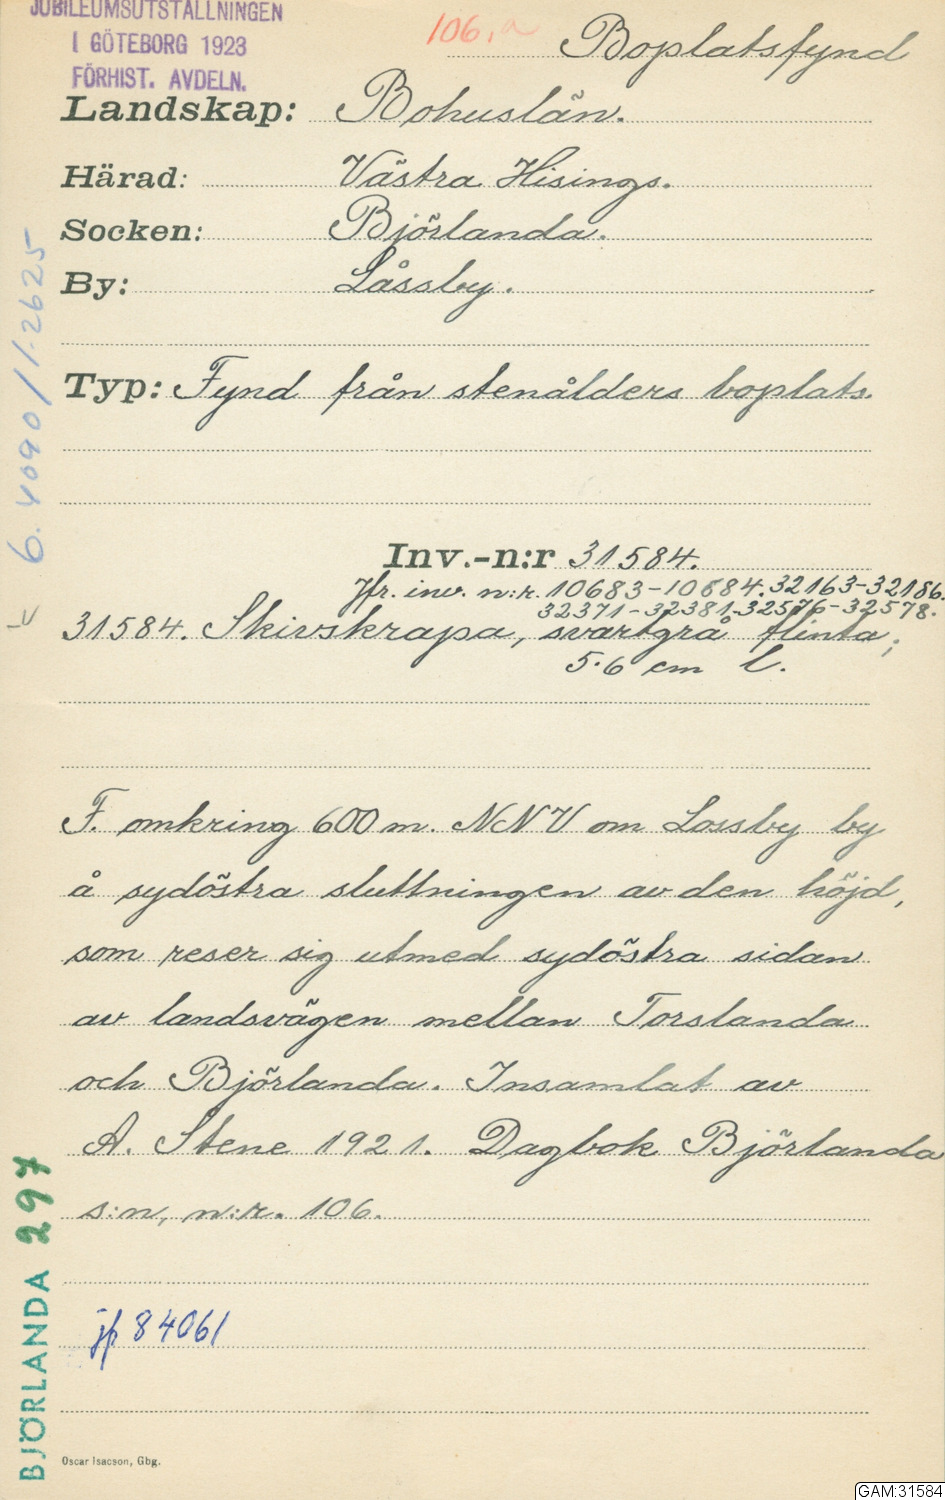 JUBILEUMSUTSTÄLLNINGEN
I GÖTEBORG 1923
FÖRHIST. AVDELN.
106.a
Boplatsfynd
Landskap: Bohuslän.
Härad: Västra Hisings.
Socken: Björlanda.
By: Låssby.
Typ: Fynd från stenålders boplats.
Inv.-n:r 31584.
Jfr. inv. n:r. 10683-10684. 32163-32186.
32371-32381. 32576-32578.
31584. Skivskrapa, svartgrå flinta;
5.6 cm l.
F. omkring 600 m. NNV om Lossby by
å sydöstra sluttningen av den höjd,
som reser sig utmed sydöstra sidan
av landsvägen mellan Torslanda
och Björlanda. Insamlat av
A. Stene 1921. Dagbok Björlanda
s:n, n:r. 106.
jfr 84061
Oscar Isacson, Gbg.
6.4090/1-2625
BJÖRLANDA 297
GAM:31584